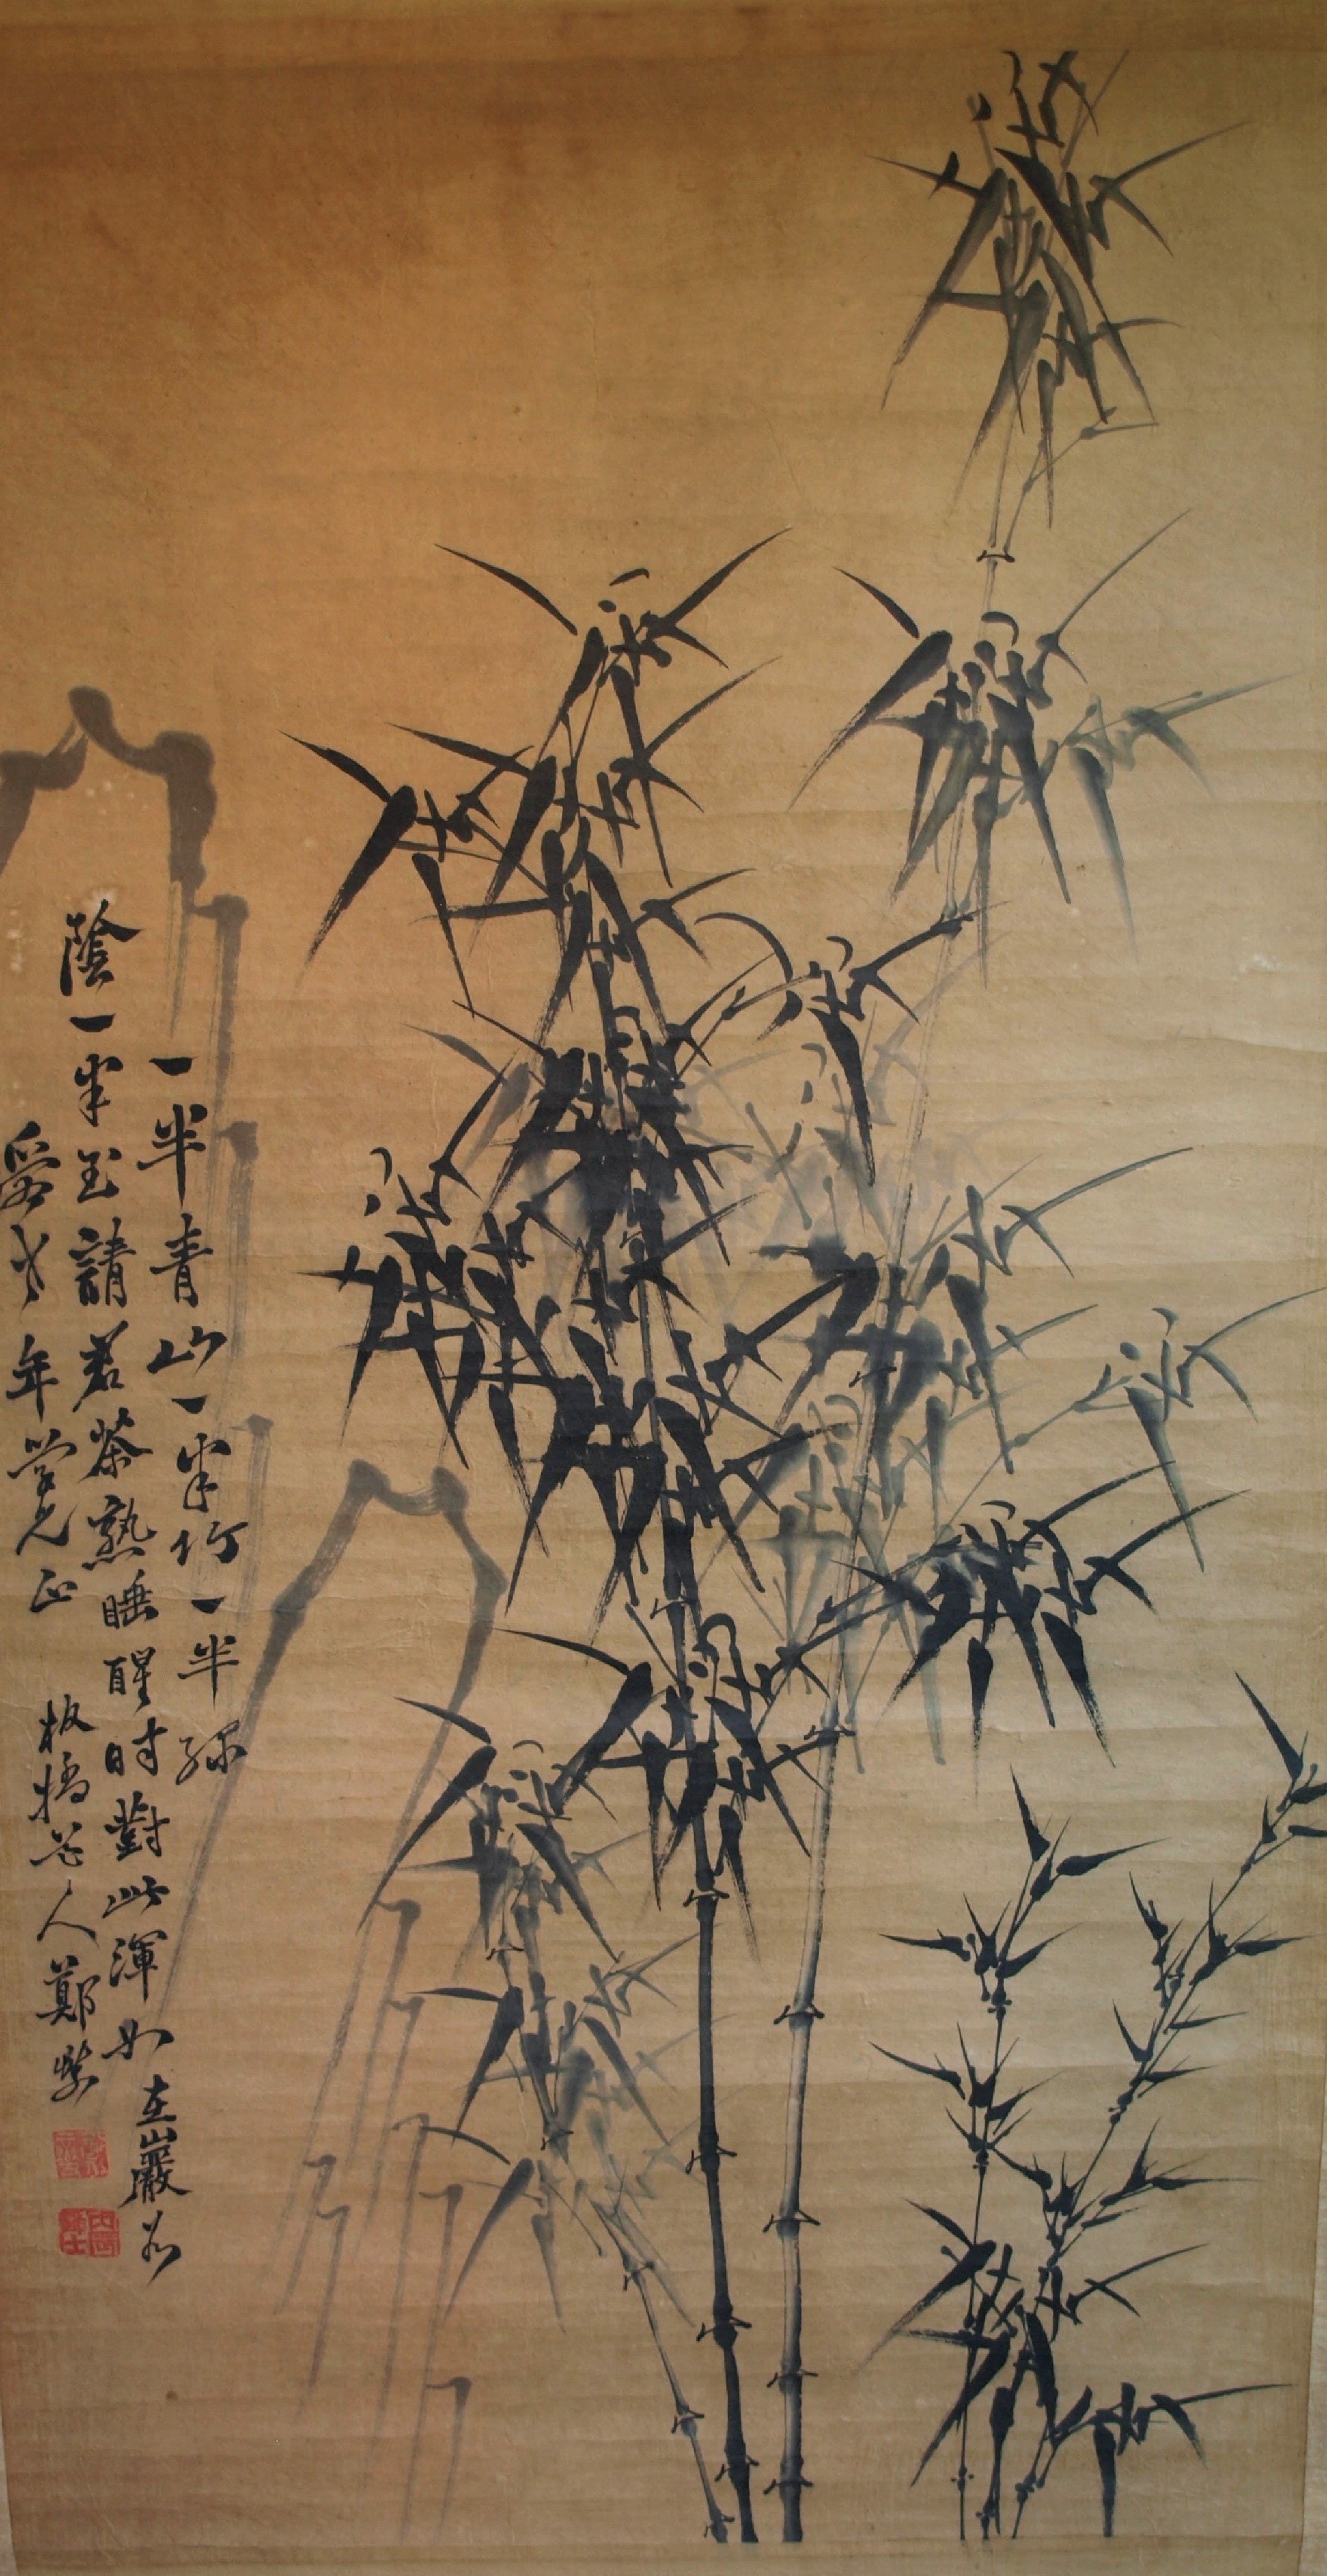 一半青山一半竹一半綠
陰一半玉請君茶熟睡醒時對此渾如在巖谷
爲 年學兄正 板橋老人鄭燮